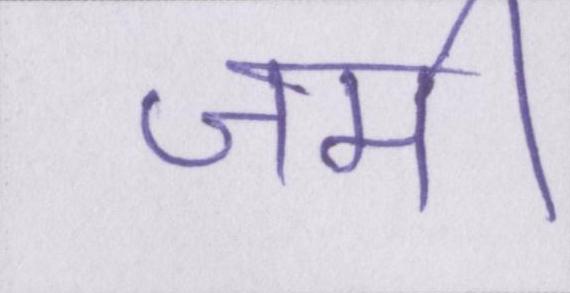 जमी